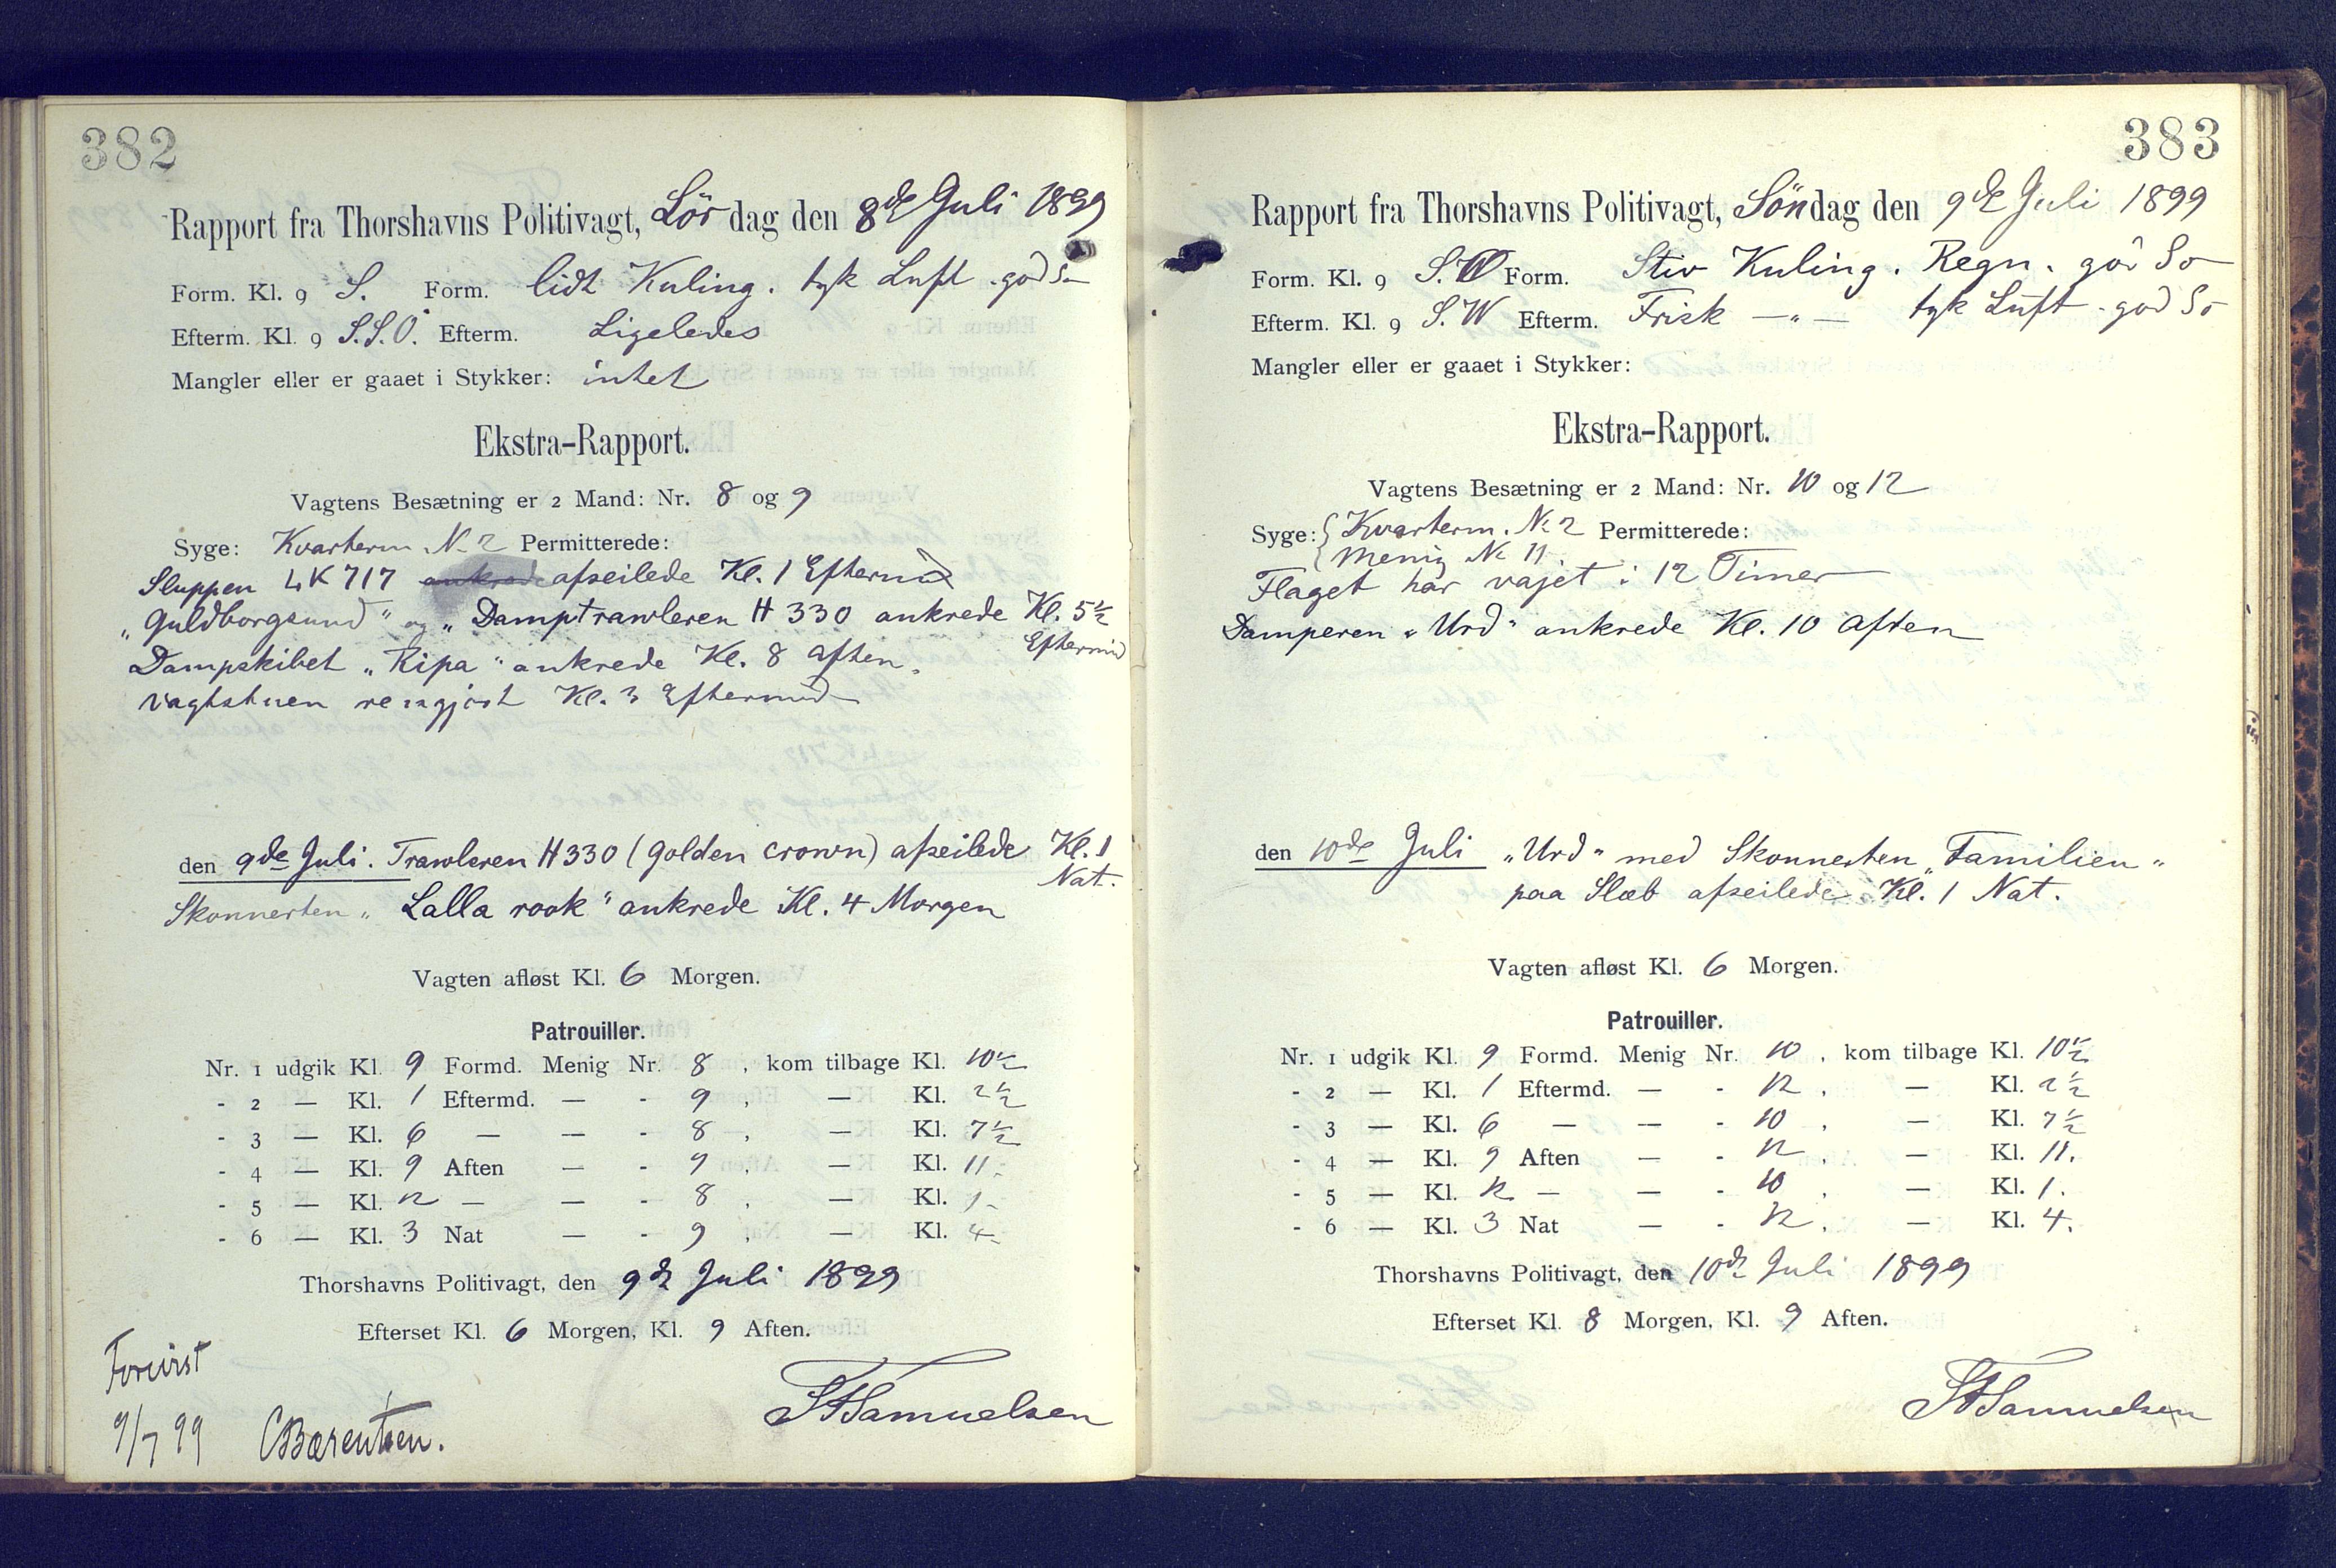 382
Rapport fra Thorshavns Politivagt, Lördag den 8de Juli 1899
Form. Kl. 9 S. Form. lidt Kuling. tyk Luft. god So
Efterm. Kl. 9 S.S.O. Efterm. Ligeledes
Mangler eller er gaaet i Stykker: intet
Ekstra-Rapport.
Vagtens Besætning er 2 Mand: Nr. 8 og 9
Syge: Kvarterm. No 2 Permitterede:
Sluppen LK 717 ankrede afseilede Kl. 1 Eftermid
„Guldborgsund“ og „Damptrawleren H 330 ankrede Kl. 5½
Eftermid
Dampskibet „Ripa“ ankrede Kl. 8 Aften.
Vagtstuen rengjort Kl. 3 Eftermid
den 9de Juli. Trawleren H 330 (golden crown) afseilede Kl. 1
Nat.
Skonnerten „Lalla rook“ ankrede Kl. 4 Morgen
Vagten afløst Kl. 6 Morgen.
Patrouiller.
Nr. 1 udgik Kl. 9 Formd. Menig Nr. 8, kom tilbage Kl. 10½
- 2 — Kl. 1 Eftermd. — - 9, — Kl. 2½
- 3 — Kl. 6 — — - 8, — Kl. 7½
- 4 — Kl. 9 Aften — - 9, — Kl. 11.
- 5 — Kl. 12 — — - 8, — Kl. 1.
- 6 — Kl. 3 Nat — - 9, — Kl. 4.
Thorshavns Politivagt, den 9de Juli 1899
Efterset Kl. 6 Morgen, Kl. 9 Aften.
Forevist
9/7 99 CBærentsen.
Samuelsen
383
Rapport fra Thorshavns Politivagt, Söndag den 9de Juli 1899
Form. Kl. 9 S.W Form. Stiv Kuling. Regn. god So
Efterm. Kl. 9 S.W Efterm. Frisk —„— tyk Luft. god So
Mangler eller er gaaet i Stykker:
Ekstra-Rapport.
Vagtens Besætning er 2 Mand: Nr. 10 og 12
Syge: { Kvarterm. No 2 Permitterede:
Menig No 11
Flaget har vajet i 12 Timer
Damperen „Urd“ ankrede Kl. 10 Aften
den 10de Juli „Urd“ med Skonnerten „Familien“
paa Slæb afseilede Kl. 1 Nat.
Vagten afløst Kl. 6 Morgen.
Patrouiller.
Nr. 1 udgik Kl. 9 Formd. Menig Nr. 10, kom tilbage Kl. 10½
- 2 — Kl. 1 Eftermd. — - 12, — Kl. 2½
- 3 — Kl. 6 — — - 10, — Kl. 7½
- 4 — Kl. 9 Aften — - 12, — Kl. 11.
- 5 — Kl. 12 — — - 10, — Kl. 1.
- 6 — Kl. 3 Nat — - 12, — Kl. 4.
Thorshavns Politivagt, den 10de Juli 1899
Efterset Kl. 8 Morgen, Kl. 9 Aften.
Samuelsen